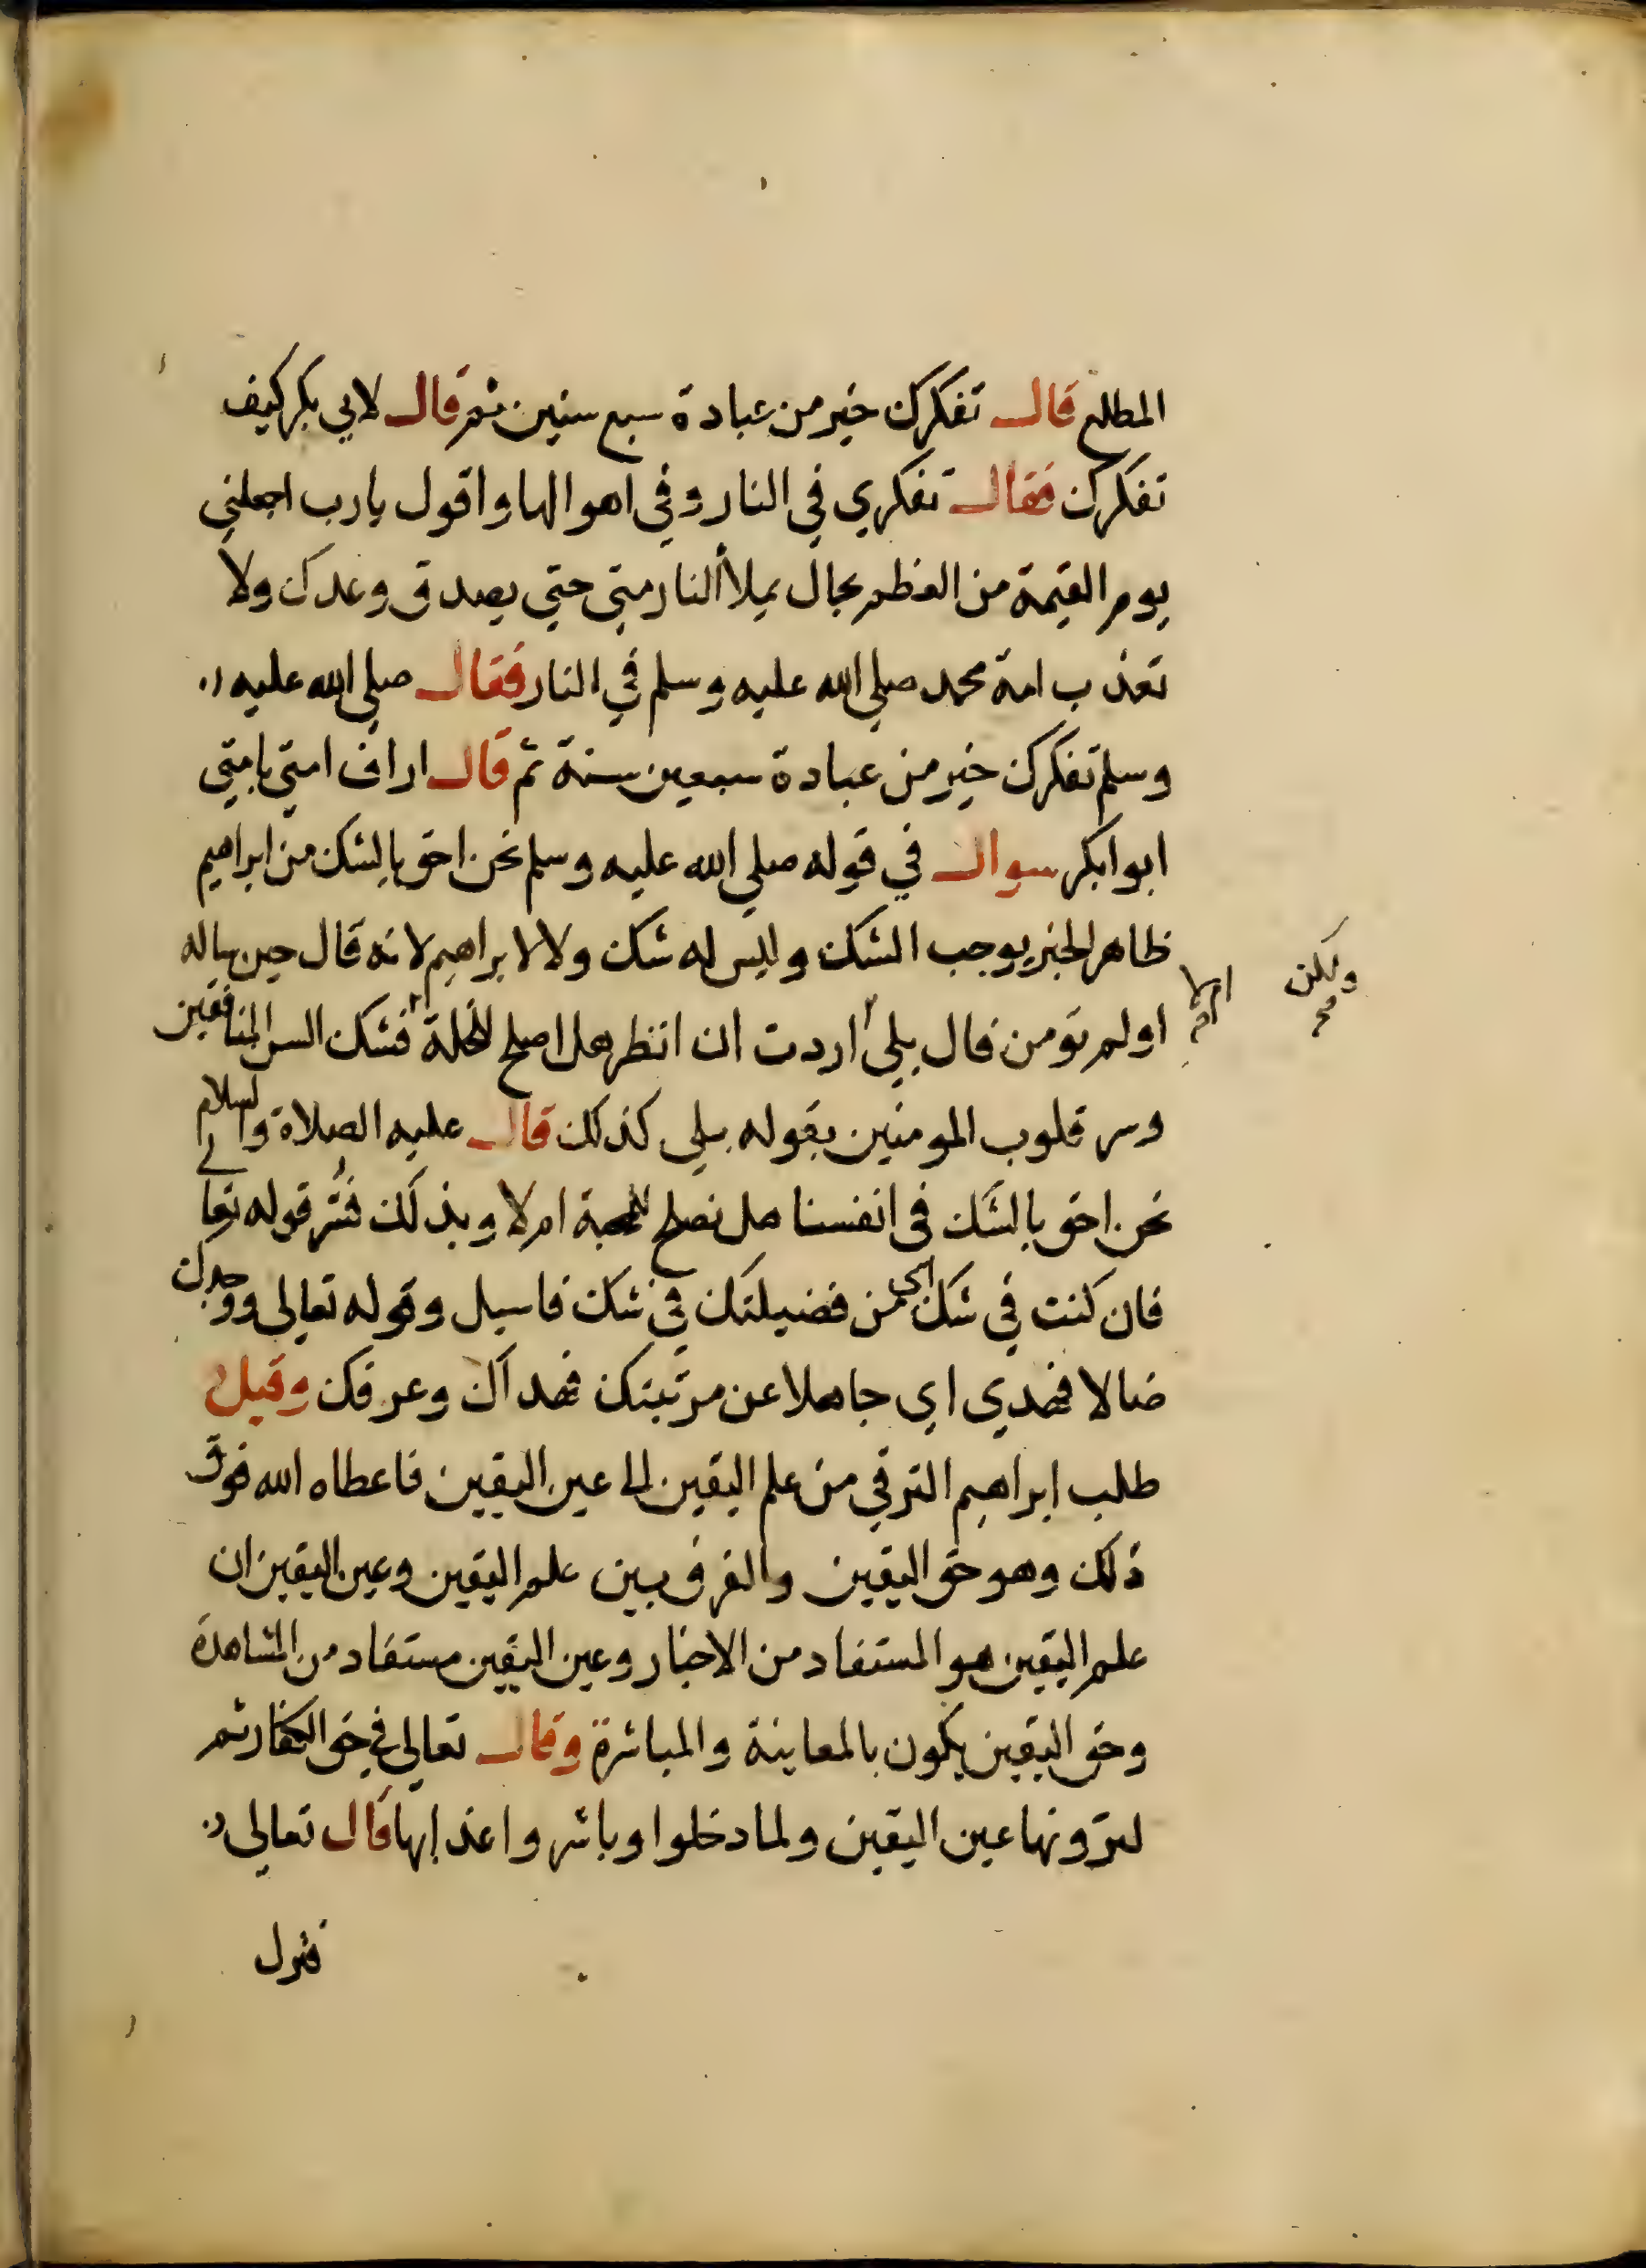 المطلع قال تفكرك خير من عبادة سبع سنين ثم قال لابي بكر كيف
تفكرك فقال تفكري في النار وفي اهوالها واقول يارب اجعلني
يوم القيمة من العظم بحال يملأ النار مني حتي يصدق وعدك ولا
تعذب امة محمد صلي الله عليه وسلم في النار فقال صلي الله عليه
وسلم تفكرك خير من عبادة سبعين سنة ثم قال اراف امتي بامتي
ابوابكر سوال في قوله صلي الله عليه وسلم نحن احق بالشك من ابراهيم
ظاهر الخبر يوجب الشك وليس له شك ولا لابراهيم لانه قال حين ساله
اولم تومن قال بلي اردت ان انظر هل اصلح للخلة فشك السر المنافقين
ولكن صح
ام لا صح
وسر قلوب المومنين بقوله بلي كذلك قال عليه الصلاة والسلام
نحن احق بالشك في انفسنا هل نصلح للمحبة ام لا وبذلك فسر قوله تعالي
فان كنت في شك اي من فضيلتك في شك فاسيل وقوله تعالي ووجدك
ضالا فهدي اي جاهلا عن مرتبتك فهداك وعرفك وقيل
طلب ابراهيم الترقي من علم اليقين الي عين اليقين فاعطاه الله فوق
ذلك وهو حق اليقين والفرق بين علم اليقين وعين اليقين ان
علم اليقين هو المستفاد من الاخبار وعين اليقين مستفاد من المشاهدة
وحق اليقين يكون بالمعاينة والمباشرة وقال تعالي في حق الكفار ثم
لترونها عين اليقين ولما دخلوا وباشروا عذابها قال تعالي
فنزل